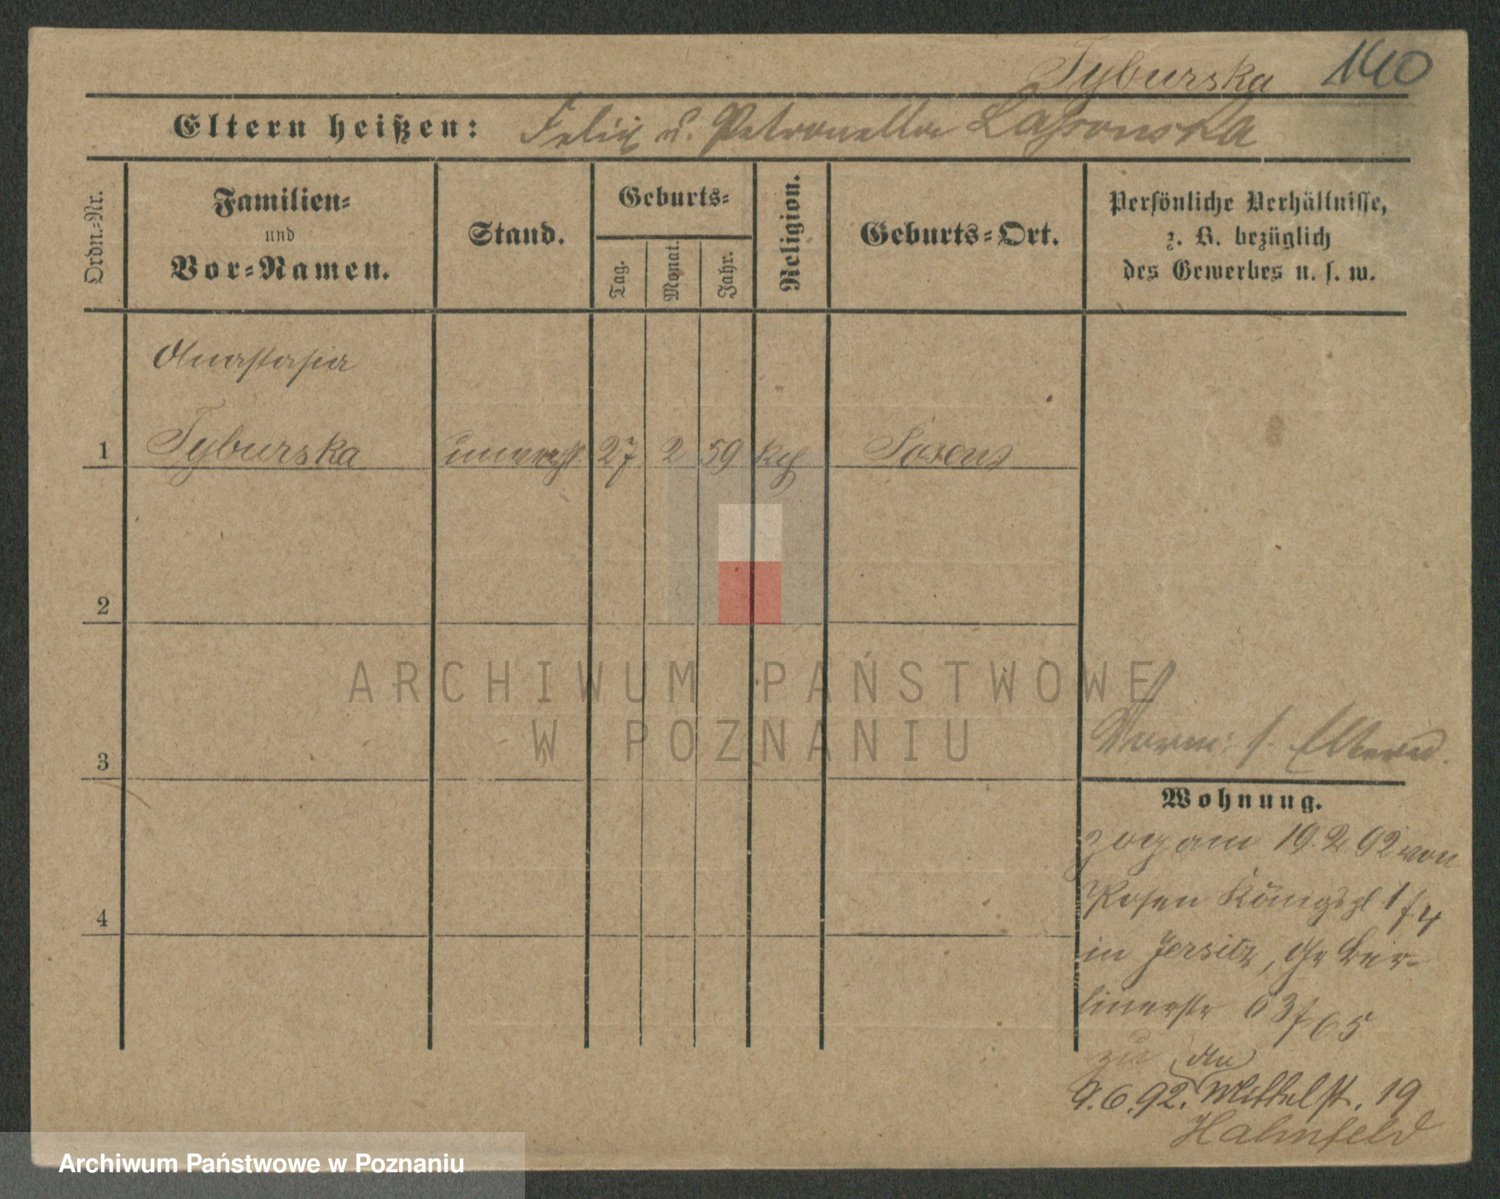 Tyburska 140
Eltern heißen: Felix u. Petronella
Ordn.-Nr.
Familien-
und
Vor-Namen.
Stand.
Geburts-
Tag.
Monat.
Jahr.
Religion.
Geburts-Ort.
Persönliche Verhältnisse,
z. B. bezüglich
des Gewerbes u. s. w.
Anastasia
1 Tyburska unvereh 27 2 59 kth
2
3
4
ARCHIWUM PAŃSTWOWE
W POZNANIU
Vorm: s. Eltern.
Wohnung.
zog am 19.2 92 von
Posen Königspl 1/4
in Jersitz, Gr Ber-
linerstr 63/65
zu An
9.6.92. Mittelst. 19
Archiwum Państwowe w Poznaniu